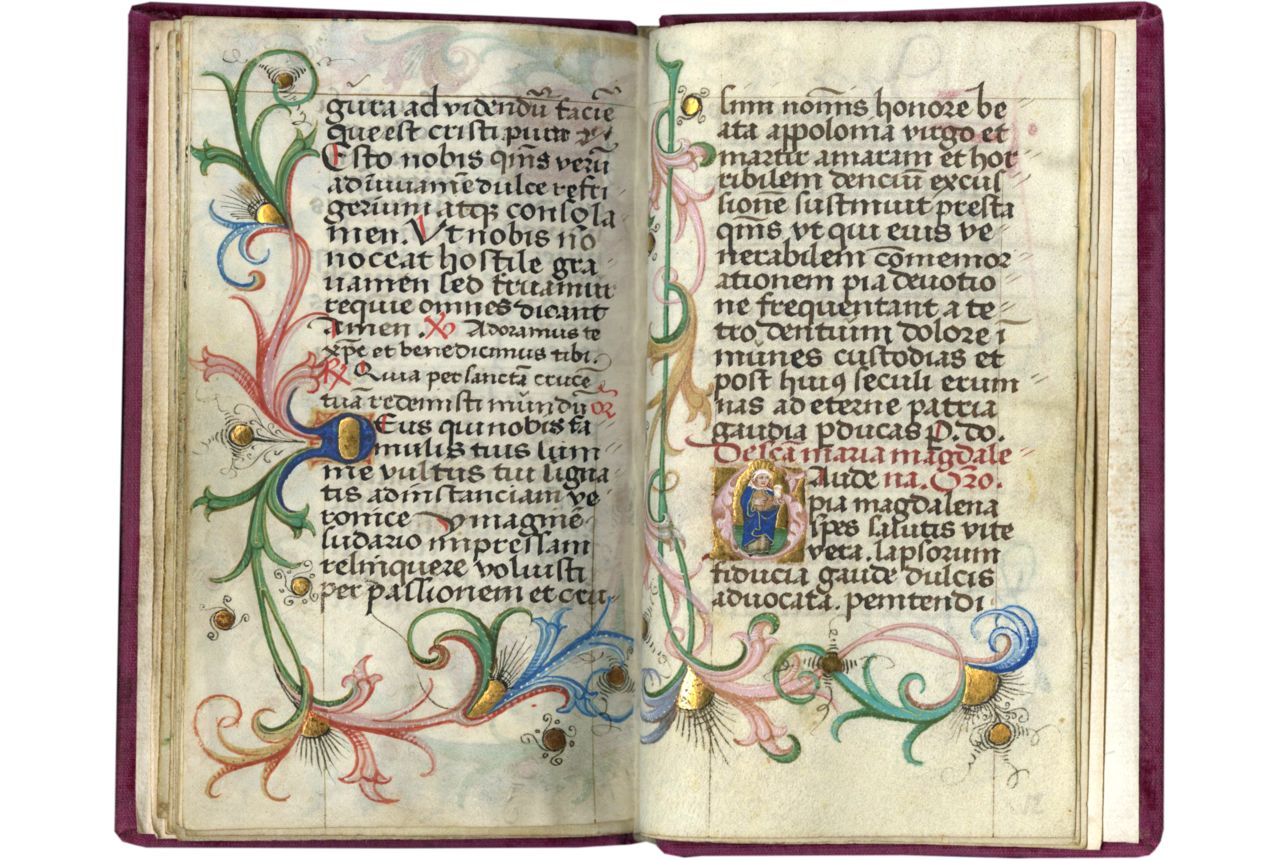 gura ad videndū faciē
que est cristi pura
Esto nobis qms verū
adiuuamē dulce refri
gerium atq; consola
men. Vt nobis nō
noceat hostile gra
uamen sed fruamur
requie omnes dicant
amen. Adoramus te
xp̄e et benedicimus tibi.
Quia per sanctā crucē
tuā redemisti mūndū or
Deus qui nobis fa
mulis tuis lum
ine vultus tui signa
tis ad instanciam ve
ronice ymaginē
sudario impressam
relinquere voluisti
per passionem et cru
sum nominis honore be
ata appolonia virgo et
martir amaram et hor
ribilem denciū excus
sionē sustinuit presta
qms vt qui eius ve
nerabilem cōmemor
ationem pia deuotio
ne frequentant a te
tro dentium dolore ī
mūnes custodias et
post huiꝯ seculi erum
nas ad eterne patria
gaudia pducas P. do.
De scā maria magdale
Gaude na. Oro.
pia magdalena
spes salutis vite
vera. lapsorum
fiducia gaude dulcis
aduocata. penitendi